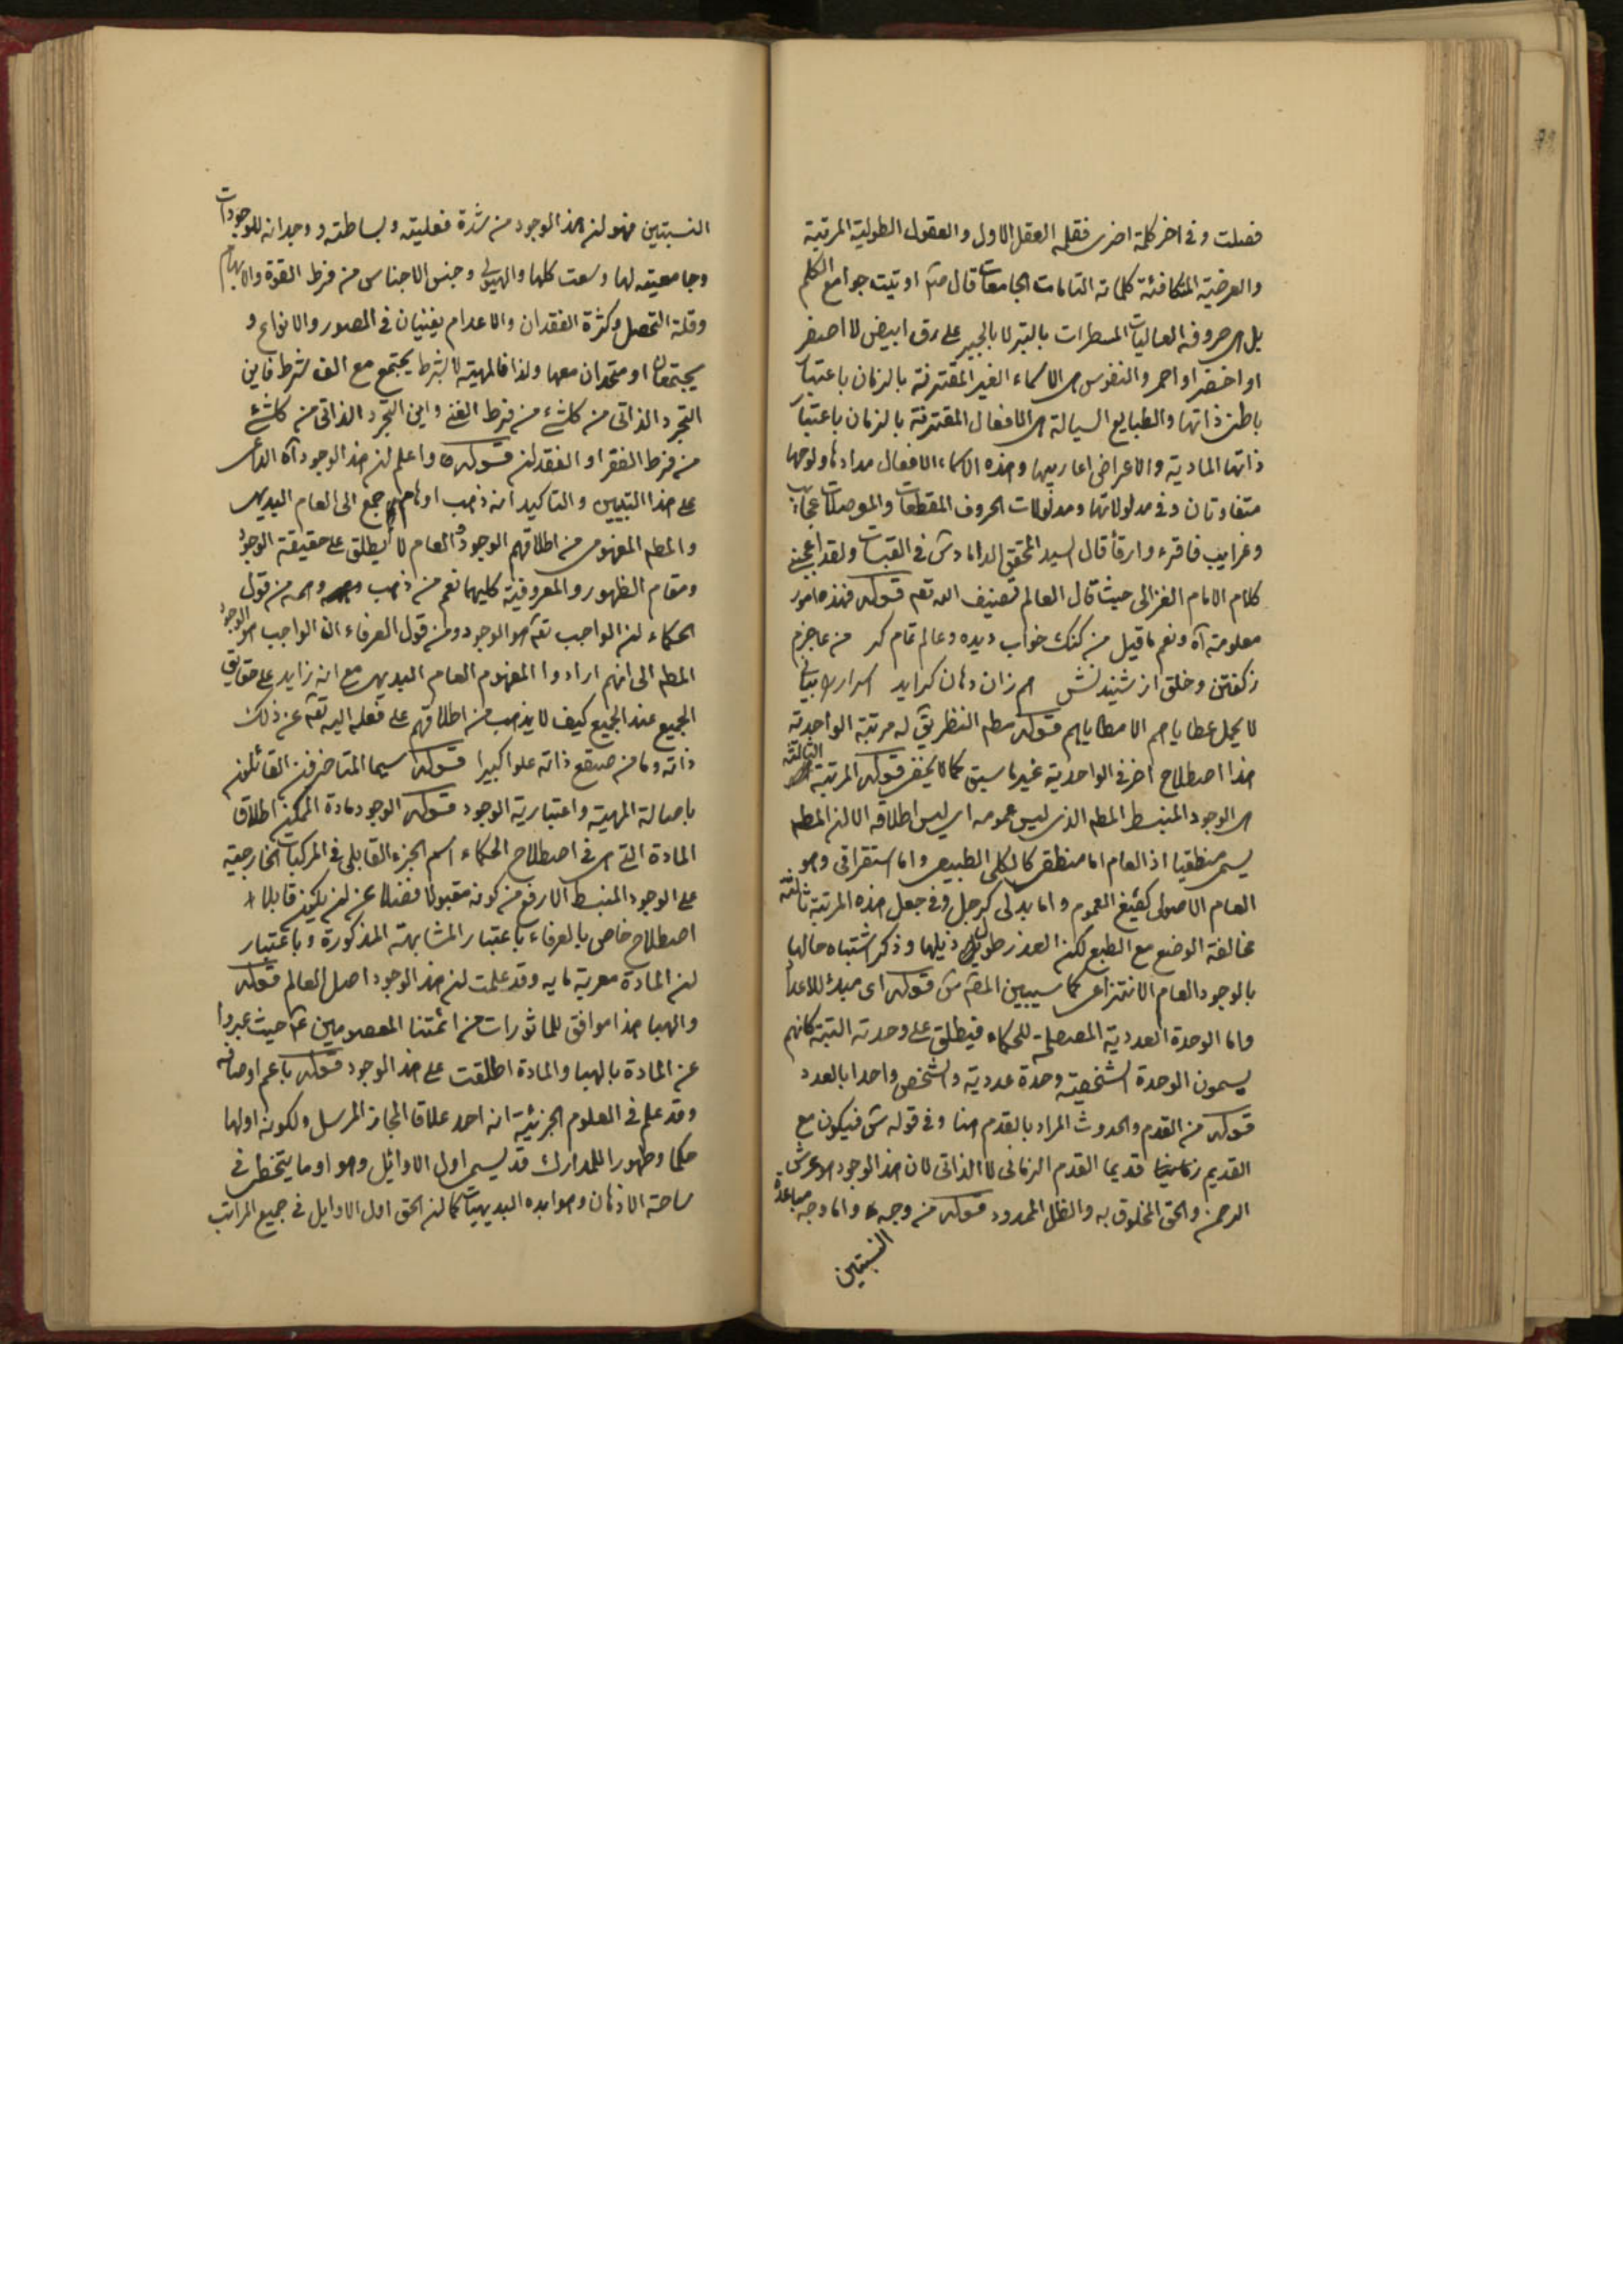 فصلت وفى اخر كلمة اخرى فقلمه العقل الاول والعقول الطولية المرتبة
والعرضية المتكافئة كلماته التامات الجامعات قال ص اوتيت جوامع الكلم
بل هى حروفه العاليات المسطرات بالتبر لا بالحبر على رق ابيض لا اصفر
او اخضر او احمر والنفوس هى الاسماء الغير المقترنة بالزمان باعتبار
باطن ذاتها والطبايع السيالة هى الافعال المقترنة بالزمان باعتبار
ذاتها المادية والاعراض اعاريبها وهذه الاسماء الافعال مدادها ولوحها
متفاوتان وفى مدلولاتها ومدلولات الحروف المقطعات والموصلات عجايب
وغرايب فاقرء وارقأ قال السيد المحقق الداماد ش فى القبسات ولقد اعجبنى
كلام الامام الغزالى حيث قال العالم تصنيف الله تعه قوله فهذه امور
معلومة آه ونعم ما قيل من كنك خواب ديده وعالم تمام كر من عاجزم
زكفتن وخلق از شنيدنش هم زان دهان كرايد اسرار را بيانى
لا يحمل عطاياهم الا مطاياهم قوله سطه النظر يق له مرتبة الواحدية
هذا اصطلاح اخر فى الواحدية غير ما سبق كما لا يخفى قوله المرتبة الثالثة
هى الوجود المنبسط المطه الذى ليس عمومه اى ليس اطلاقه الا لان المطه
يسمى منطقيا اذ العام اما منطقى كالكلى الطبيعى واما استغراقى وهو
العام الاصولى كصيغ العموم واما بدلى كرجل وفى جعل هذه المرتبة ثالثة
مخالفة الوضع مع الطبع لكن العذر طول ذيلها وذكر اشتباه حالها
بالوجود العام الانتزاعى كما سيبين المص ش قوله اى مبدء للاعداد
واما الوحدة العددية المصطلحة للحكماء فيطلق على وحدته البتة كانهم
يسمون الوحدة الشخصية وحدة عددية والشخص واحدا بالعدد
قوله من القدم والحدوث المراد بالقدم هنا وفى قوله ش فيكون مع
القديم زمانيا قديما القدم الزمانى لا الذاتى لان هذا الوجود هو عرش
الرحمن والحق المخلوق به والظل الممدود قوله من وجه واما وجه مباعدة
النسبتين
النسبتين فهو ان هذا الوجود من شدة فعليته وبساطته ووجدانه للوجودات
وجامعيته لها وسعت كلها والهيولى وجنس الاجناس من فرط القوة والابهام
وقلة التحصل وكثرة الفقدان والاعدام يفنيان فى الصور والانواع و
يجتمعان او متحدان معها ولذا فالمهية لا بشرط يجتمع مع الف شرط فاين
التجرد الذاتى من كل شئ من فرط الغنى واين التجرد الذاتى من كل شئ
من فرط الفقر او الفقد ان قوله واعلم ان هذا الوجود آه الداعى
على هذا التبيين والتاكيد انه ذهب اوهام جمع الى العام البديهى
والمطه المفهومى من اطلاقهم الوجود العام لا يطلق على حقيقة الوجود
ومقام الظهور والمعروفية كليهما نعم من ذهب وهمه من قول
الحكماء ان الواجب تعه هو الوجود ومن قول العرفاء ان الواجب هو الوجود
المطه الى انهم ارادوا المفهوم العام البديهى مع انه زايد على حقايق
الجميع عند الجميع كيف لا يذهب من اطلاقهم على فعله اليه تعه عن ذلك
ذاته وما من صقع ذاته علوا كبيرا قوله سيما المتاخرين القائلين
باصالة المهية واعتبارية الوجود قوله الوجود مادة الممكن اطلاق
المادة التى هى فى اصطلاح الحكماء اسم الجزء القابلى فى المركبات الخارجية
على الوجود المنبسط الارفع من كونه مقبولا فضلا عن ان يكون قابلا
اصطلاح خاص بالعرفاء باعتبار المشابهة المذكورة وباعتبار
ان المادة معربة مايه وقد علمت ان هذا الوجود اصل العالم قوله
والهبا هذا موافق للماثورات من ائمتنا المعصومين ع حيث عبروا
عن المادة بالهبا والمادة اطلقت على هذا الوجود قوله باعم اوصافه
وقد علم فى العلوم الجزئية انه احد علاقا المجاز المرسل ولكونه اولها
حكما وظهورا للمدارك قد يسمى اول الاوائل وهو او ما يتخطى فى
ساحة الاذهان وهو ابده البديهيات كما ان الحق اول الاوايل فى جميع المراتب